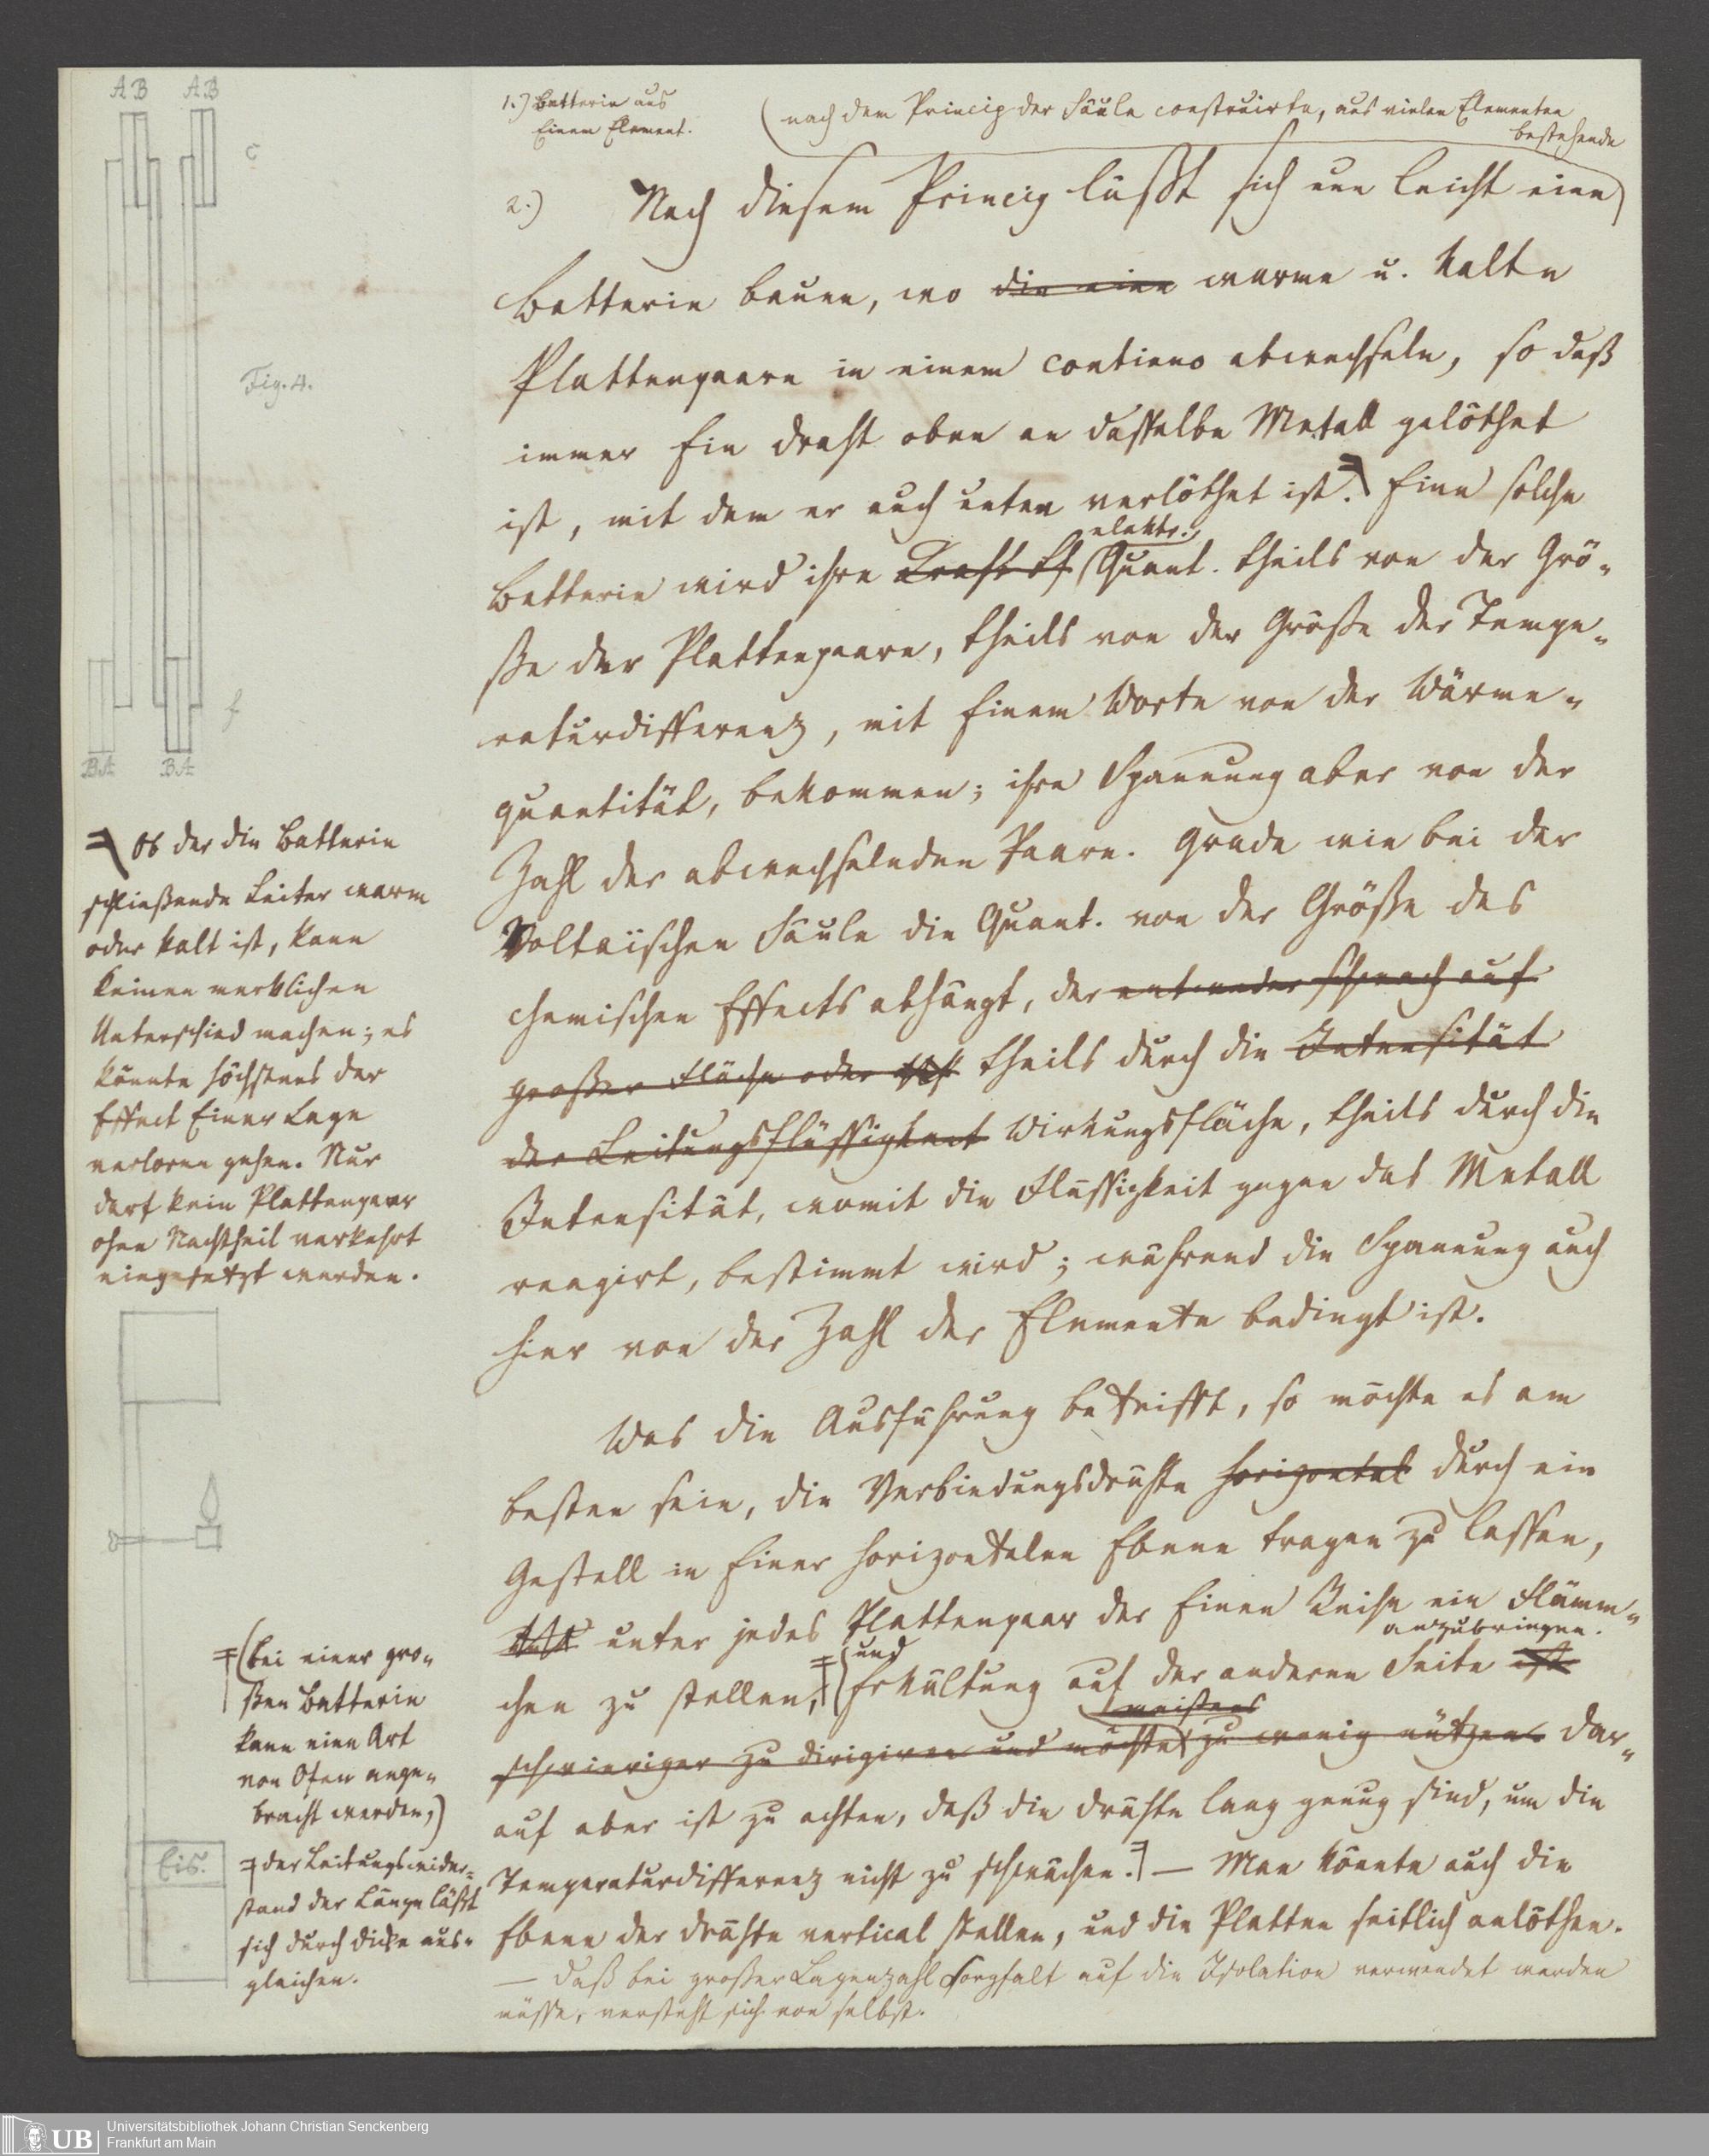 A B A B
c
Fig. 4.
f
B A B A
1.) Batterie aus
Einem Element.
(nach dem Princip der Säule construirte, aus vielen Elementen
bestehende
2.) Nach diesem Princip läßt sich nun leicht eine
Batterie bauen, wo die eine warme u. kalte
Plattenpaare in einem continuo abwechseln, so daß
immer Ein Draht oben an dasselbe Metall gelöthet
ist, mit dem er auch unten verlöthet ist. Eine solche
elektr.
Batterie wird ihre Quant. theils von der Grö-
ße der Plattenpaare, theils von der Größe der Tempe-
raturdifferenz, mit Einem Worte von der Wärme-
quantität, bekommen; ihre Spannung aber von der
Zahl der abwechselnden Paare. Grade wie bei der
Voltaischen Säule die Quant. von der Größe des
chemischen Effects abhängt, der entweder schwach auf
großer Fläche oder theils durch die Intensität
der Leitungsflüssigkeit Wirkungsfläche, theils durch die
Intensität, womit die Flüssigkeit gegen das Metall
reagirt, bestimmt wird; während die Spannung auch
hier von der Zahl der Elemente bedingt ist.
Was die Ausführung betrifft, so möchte es am
besten sein, die Verbindungsdrähte horizontal durch ein
Gestell in Einer horizontalen Ebene tragen zu lassen,
unter jedes Plattenpaar der Einen Reihe ein Flämm-
anzubringen.
chen zu stellen, und Erkältung auf der anderen Seite ist
meistens
schwieriger zu dirigiren und möchte zu wenig nützen. Dar-
auf aber ist zu achten, daß die Drähte lang genug sind, um die
Temperaturdifferenz nicht zu schwächen. — Man könnte auch die
Ebene der Drähte vertical stellen, und die Platten seitlich anlöthen.
— Daß bei großer Lagenzahl Sorgfalt auf die Isolation verwendet werden
müsse, versteht sich von selbst.
Ob der die Batterie
schließende Leiter warm
oder kalt ist, kann
keinen merklichen
Unterschied machen; es
könnte höchstens der
Effect Einer Lage
verloren gehen. Nur
darf kein Plattenpaar
ohne Nachtheil verkehrt
eingesetzt werden.
(bei einer gro-
ßen Batterie
kann eine Art
von Ofen ange-
bracht werden,)
Eis.
der Leitungswider-
stand der Länge läßt
sich durch Dicke aus-
gleichen.
UB
Universitätsbibliothek Johann Christian Senckenberg
Frankfurt am Main